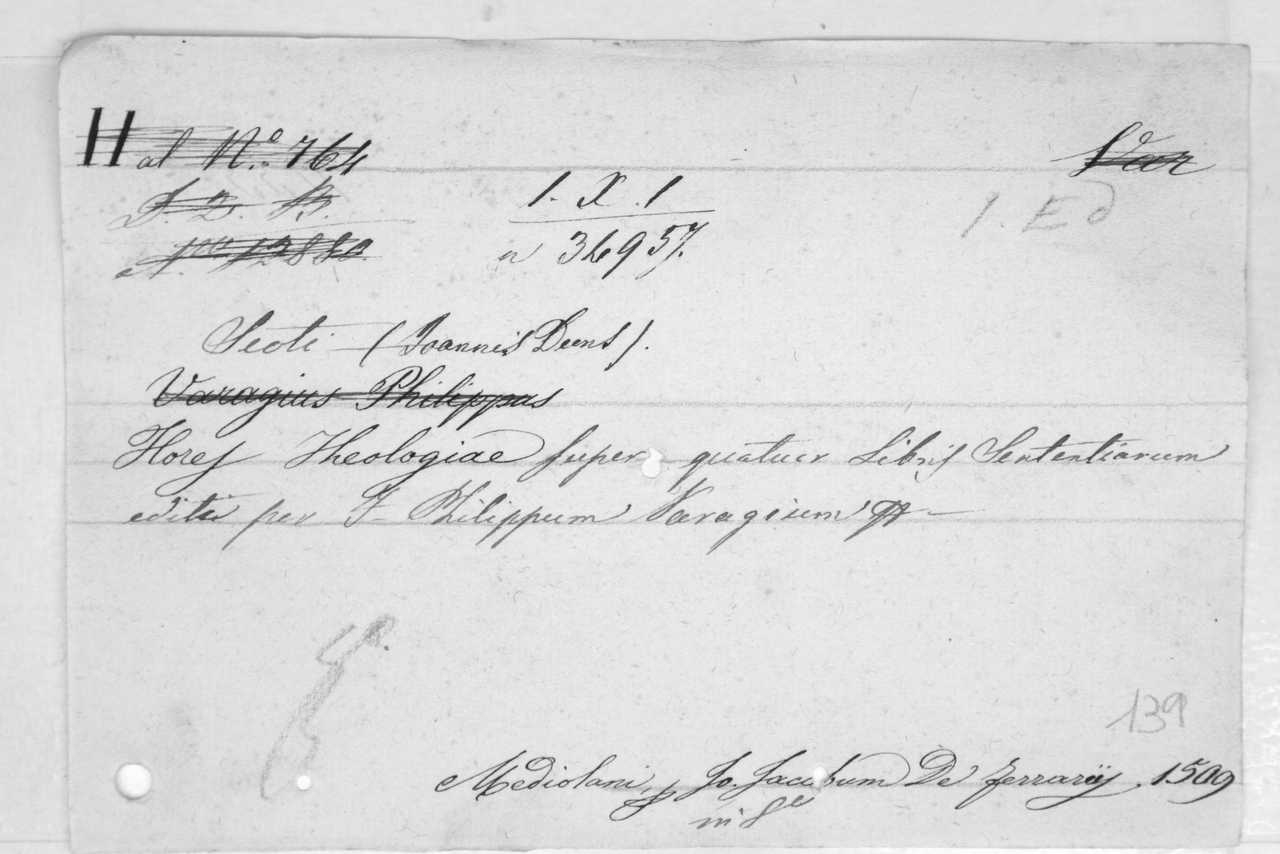 H
al N.º 764
Var
J. 2. B.
1. X. 1
1. Ed
nº 12880
n 36957.
Scoti — (Joannis Duns).
Varagius Philippus
Flores Theologiae super quatuor Libris Sententiarum
editi per F. Philippum Varagium —
139
Mediolani, p Jo. Jacobum De ferrarÿs, 1509
in 8º